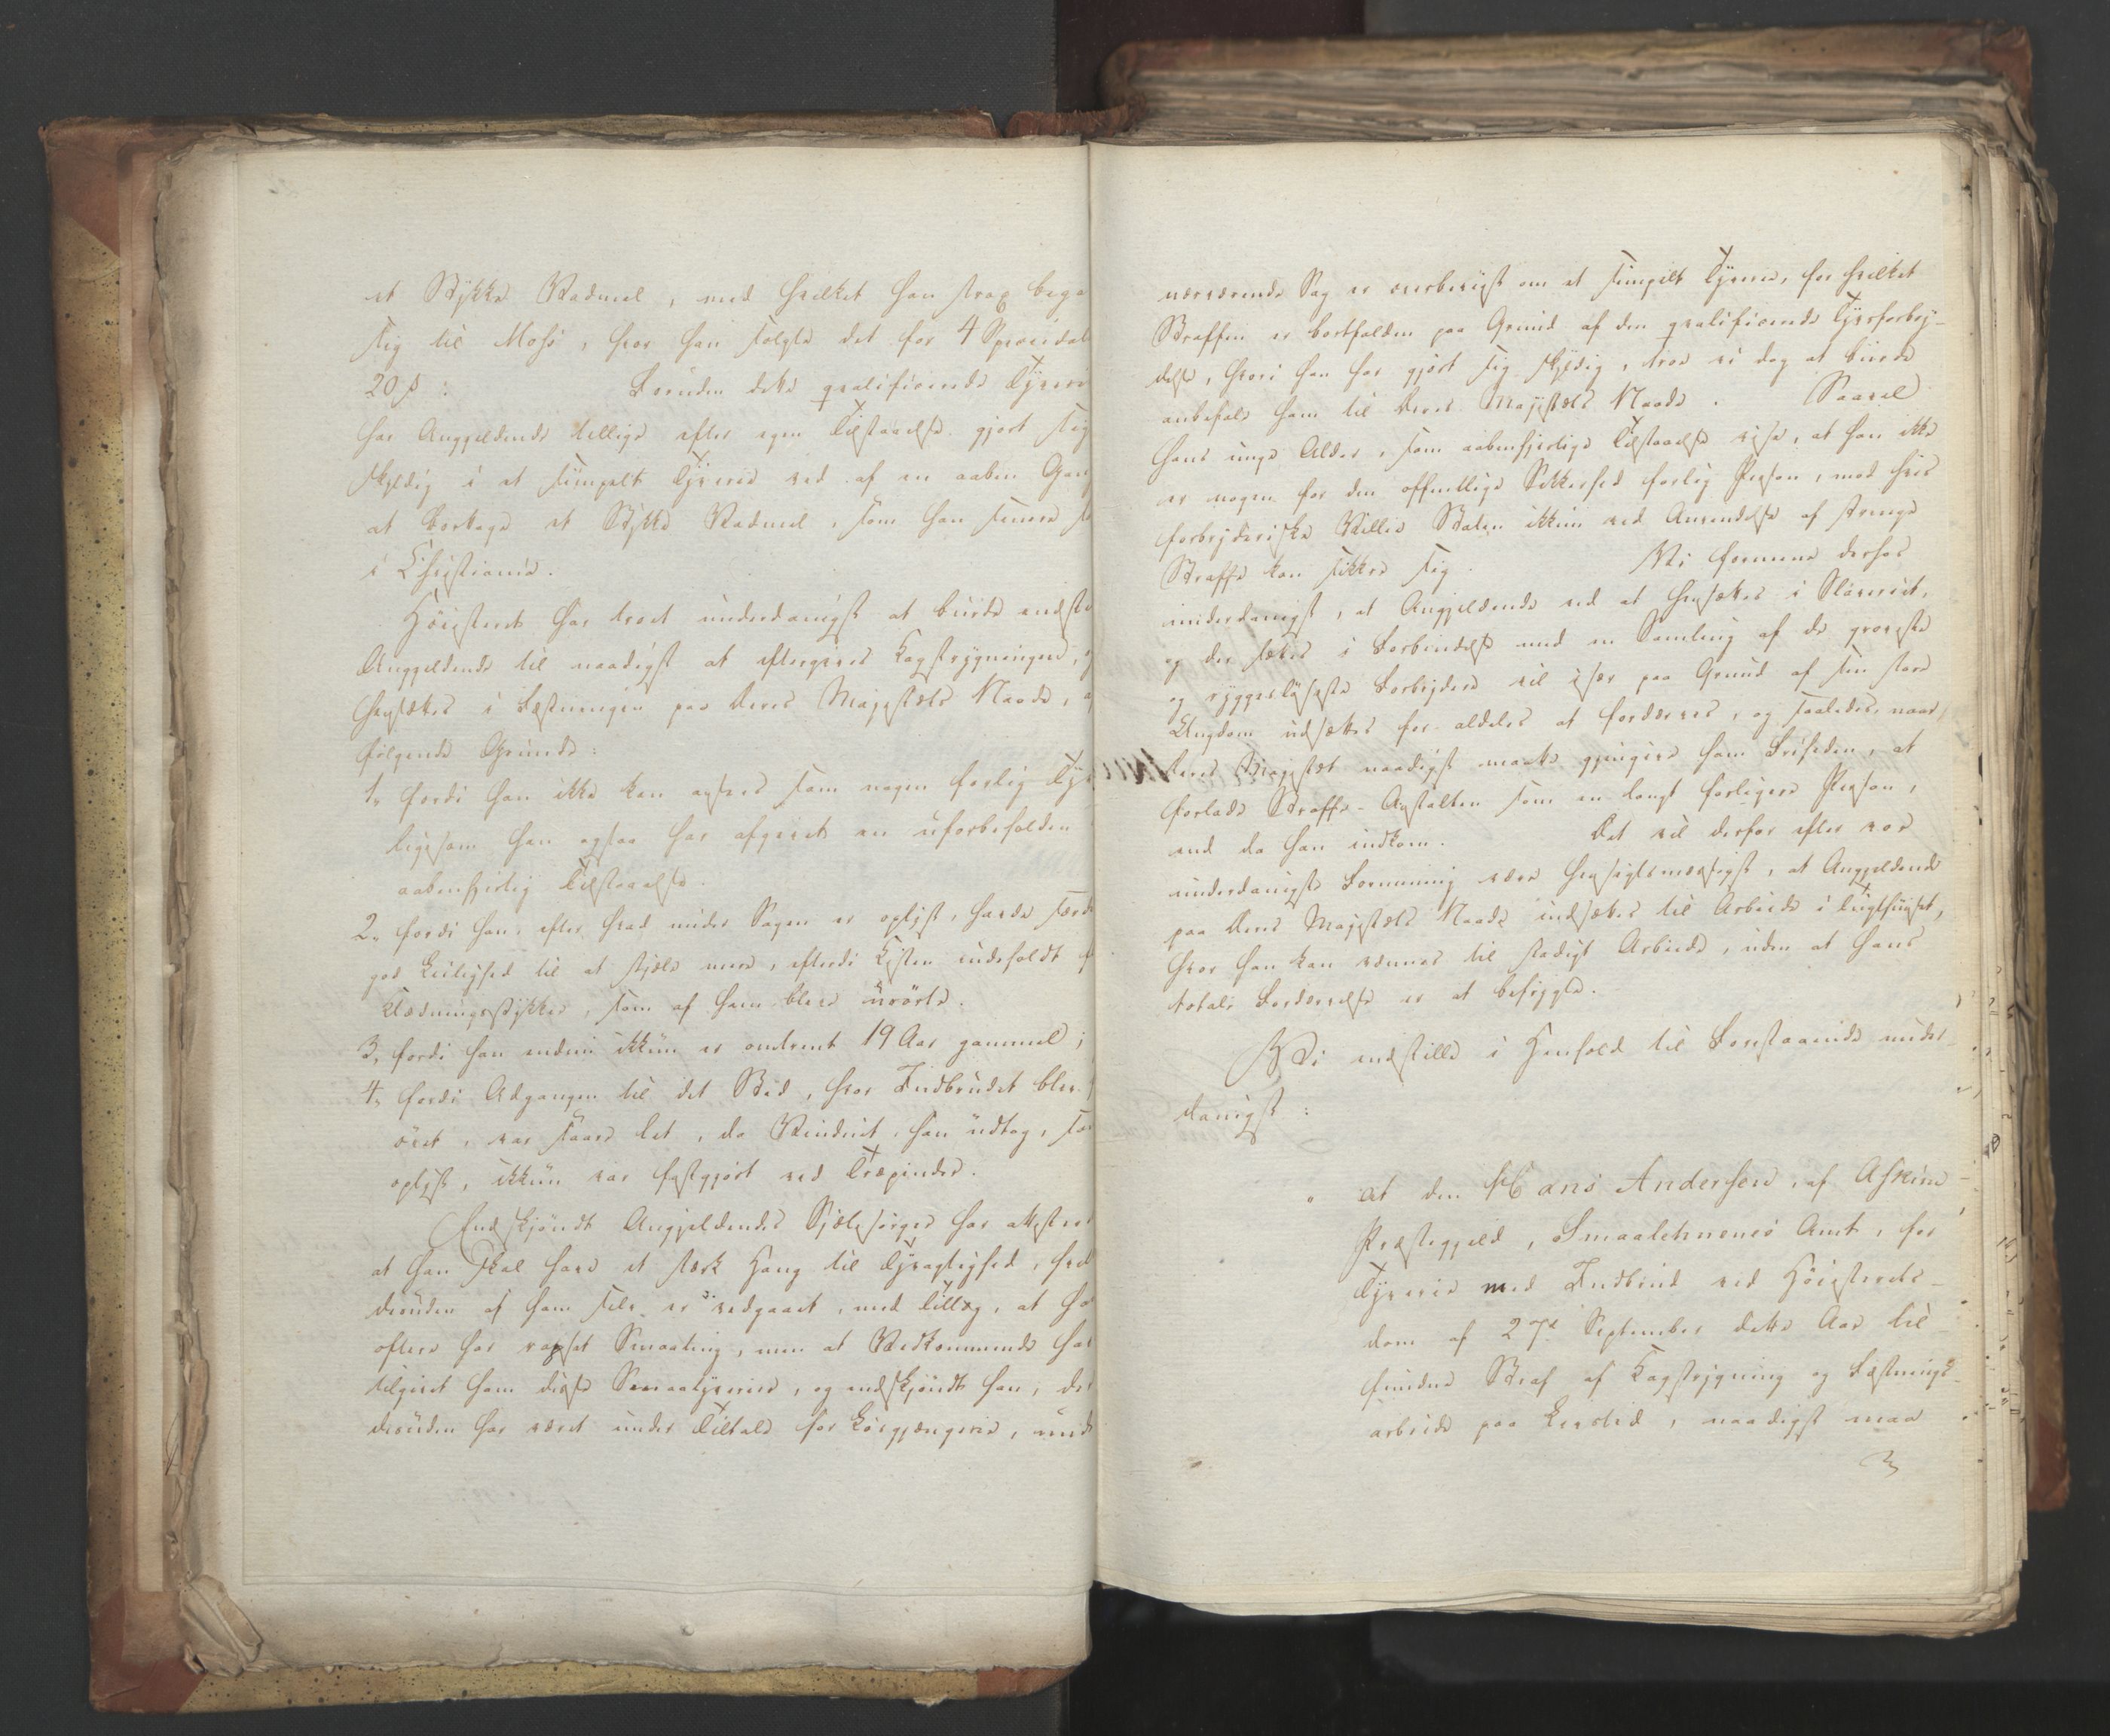 et Stykke Vadmel, med hvilket han strax bega
sig til Moss, hvor han solgte det for 4 Speciedal
20 ß: Foruden dette qvalificerede Tyveri
har Angjeldende tillige efter egen Tilstaaelse gjort sig
skyldig i et simpelt Tyverie ved af en aaben Gang
at borttage et Stykke Vadmel, som han senere
i Christiania.
Höiesteret har troet underdanigst at burde indstille
Angjeldende til naadigst at eftergives Kagstrygningen,
hensættes i Fæstningen paa Deres Majestæts Naade,
følgende Grunde:
1, fordi han ikke kan ansees som nogen farlig Ty
ligesom han ogsaa har afgivet en uforbeholden
aabenhjertig Tilstaaelse.
2, fordi han, efter hvad under Sagen er oplyst, havde særd
god Leilighed til at stjæle mere, efterdi Kisten indeholdt
Klædningsstykker, som af ham bleve urörte.
3, fordi han endnu ikkun er omtrent 19 Aar gammel;
4, fordi Adgangen til det Sted, hvor Indbrudet blev
övet, var saare let, da Vinduet, han udtog, som
oplyst, ikkun var fastgjort ved Træpinder.
Endskjöndt Angjeldendes Sjælesörger har attesteret
at han skal have et stærk Hang til Tyvagtighed, hvil
desuden af ham selv er vedgaaet, med Tillæg, at han
oftere har rapset Smaating, men at Vedkommende har
tilgivet ham disse Smaatyverier, og endskjöndt han, der
desuden har været under Tiltale for Lösgjængerie, und
nærværende Sag er overbeviist om et simpelt Tyverie, for hvilket
Straffen er bortfalden paa Grund af den qvalificerede Tyvsforbry-
delse, hvori han har gjort sig skyldig, troe vi dog at burde
anbefale ham til Deres Majestæts Naade. Saavel
hans unge Alder, som aabenhjertige Tilstaaelse vise, at han ikke
er nogen for den offentlige Sikkerhed farlig Person, mod hvis
forbryderiske Villie Staten ikkun ved Anvendelse af strenge
Straffe kan sikkre sig. Vi formene derhos
underdanigst, at Angjeldende ved at hensættes i Slaveriet,
og der sættes i Forbindelse med en Samling af de groveste
og ryggeslöseste Forbrydere vil især paa Grund af sin store
Ungdom udsættes for aldeles at fordærves, og saaledes, naar
Deres Majestæt naadigst maatte gjengive ham Friheden, at
forlade Straffe-Anstalten som en langt farligere Person,
end da han indkom. Det vil derfor efter vor
underdanigste Formening være hensigtsmæssigst, at Angjeldende
paa Deres Majestæts Naade indsættes til Arbeide i Tugthuset,
hvor han kan vænnes til stadigt Arbeide, uden at hans
totale Fordærvelse er at befrygte.
Vi indstille i Henhold til Forestaaende under-
danigst:
" at den Hans Andersen, af Askim
Præstegjeld, Smaalehnenes Amt, for
Tyverie med Indbrud ved Höiesterets-
dom af 27de September dette Aar til-
fundne Straf af Kagstrygning og Fæstnings-
arbeide paa Livstid, naadigst maa